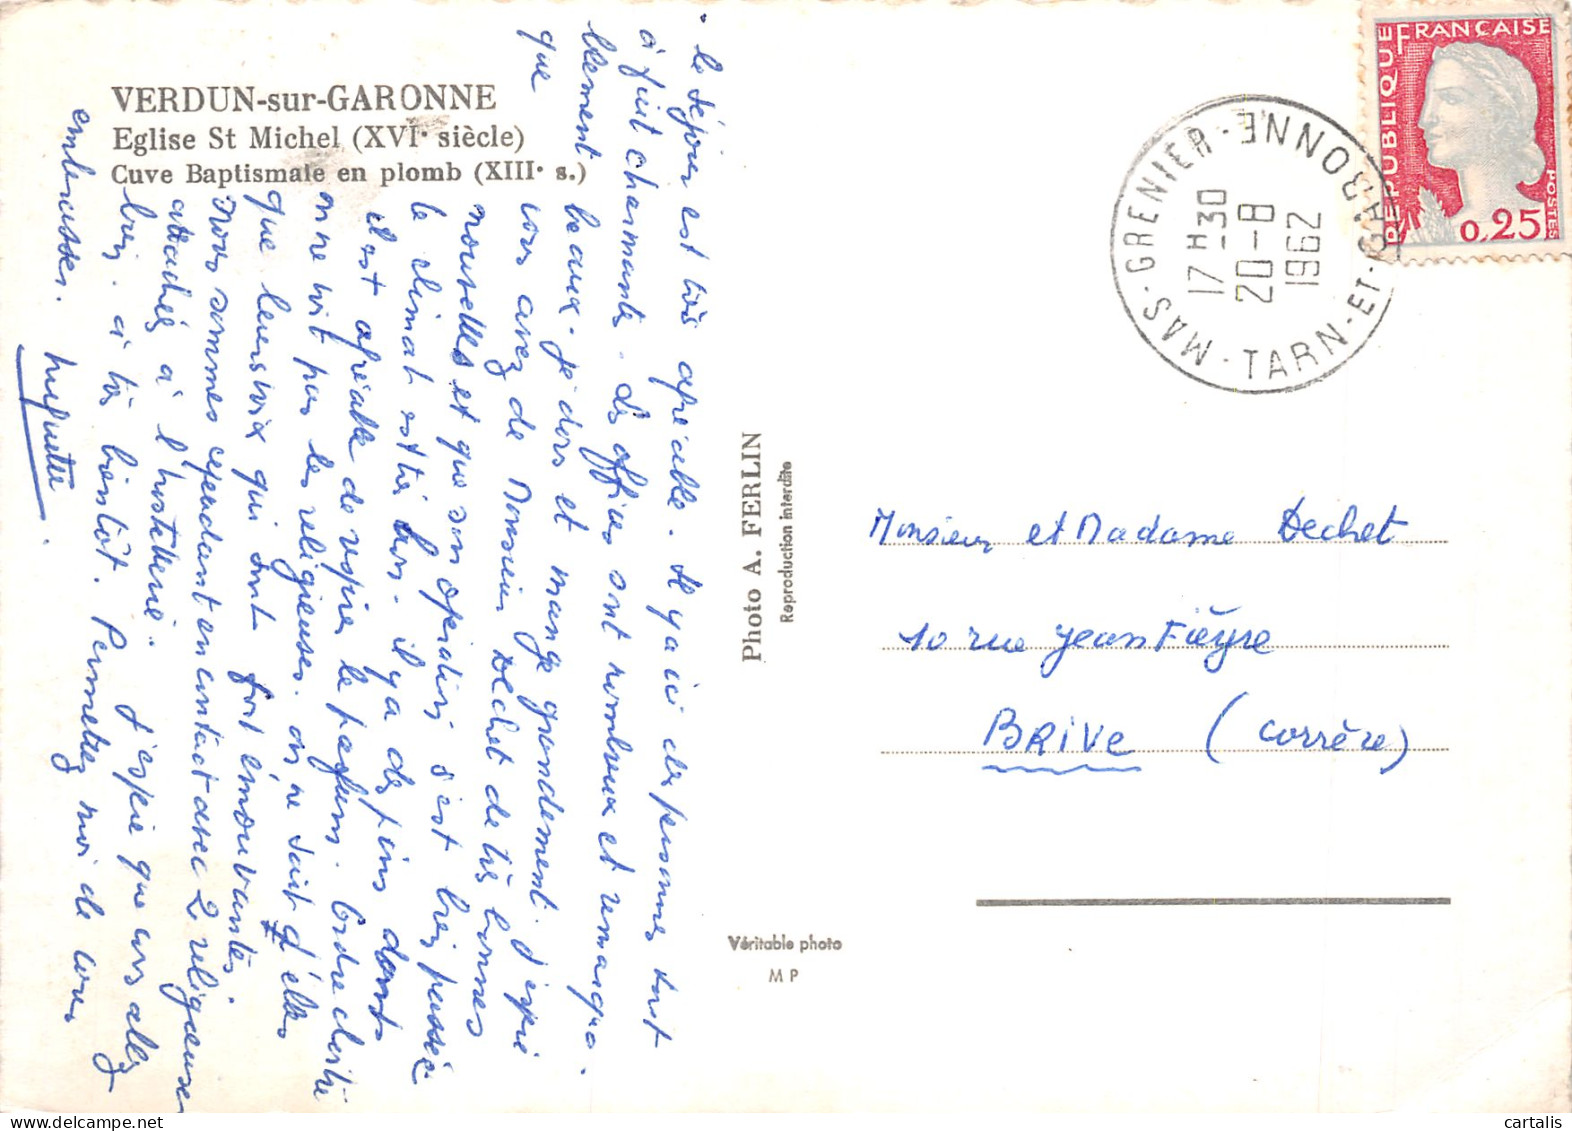 VERDUN-sur-GARONNE
Eglise St Michel (XVIe siècle)
Cuve Baptismale en plomb (XIIIe s.)
le séjour est très agréable. Il y a ici des personnes tout
à fait charmantes. Les offices sont nombreux et remarqua-
blement beaux. Je dors et mange grandement. J'espère
que vous avez de Monsieur Dechet de très bonnes
nouvelles et que son opération s'est bien passée
le climat est très bon. il y a des pins dont
il est agréable de respirer le parfum. Ordre cloitré
on ne voit pas les religieuses. on ne sait d'elles
que leurs voix qui sont fort émouvantes.
Nous sommes cependant en contact avec 2 religieuses
attachées à l'hostellerie. J'espère que vous allez
bien. à très bientôt. Permettez moi de vous
embrasser. Huguette.
Photo A. FERLIN
Reproduction interdite
Véritable photo
M P
REPUBLIQUE FRANÇAISE
POSTES
0,25
MAS-GRENIER - TARN-ET-GARONNE
17 H 30
20 - 8
1962
Monsieur et Madame Dechet
10 rue Jean Fieyre
BRIVE (Corrèze)
cartalis